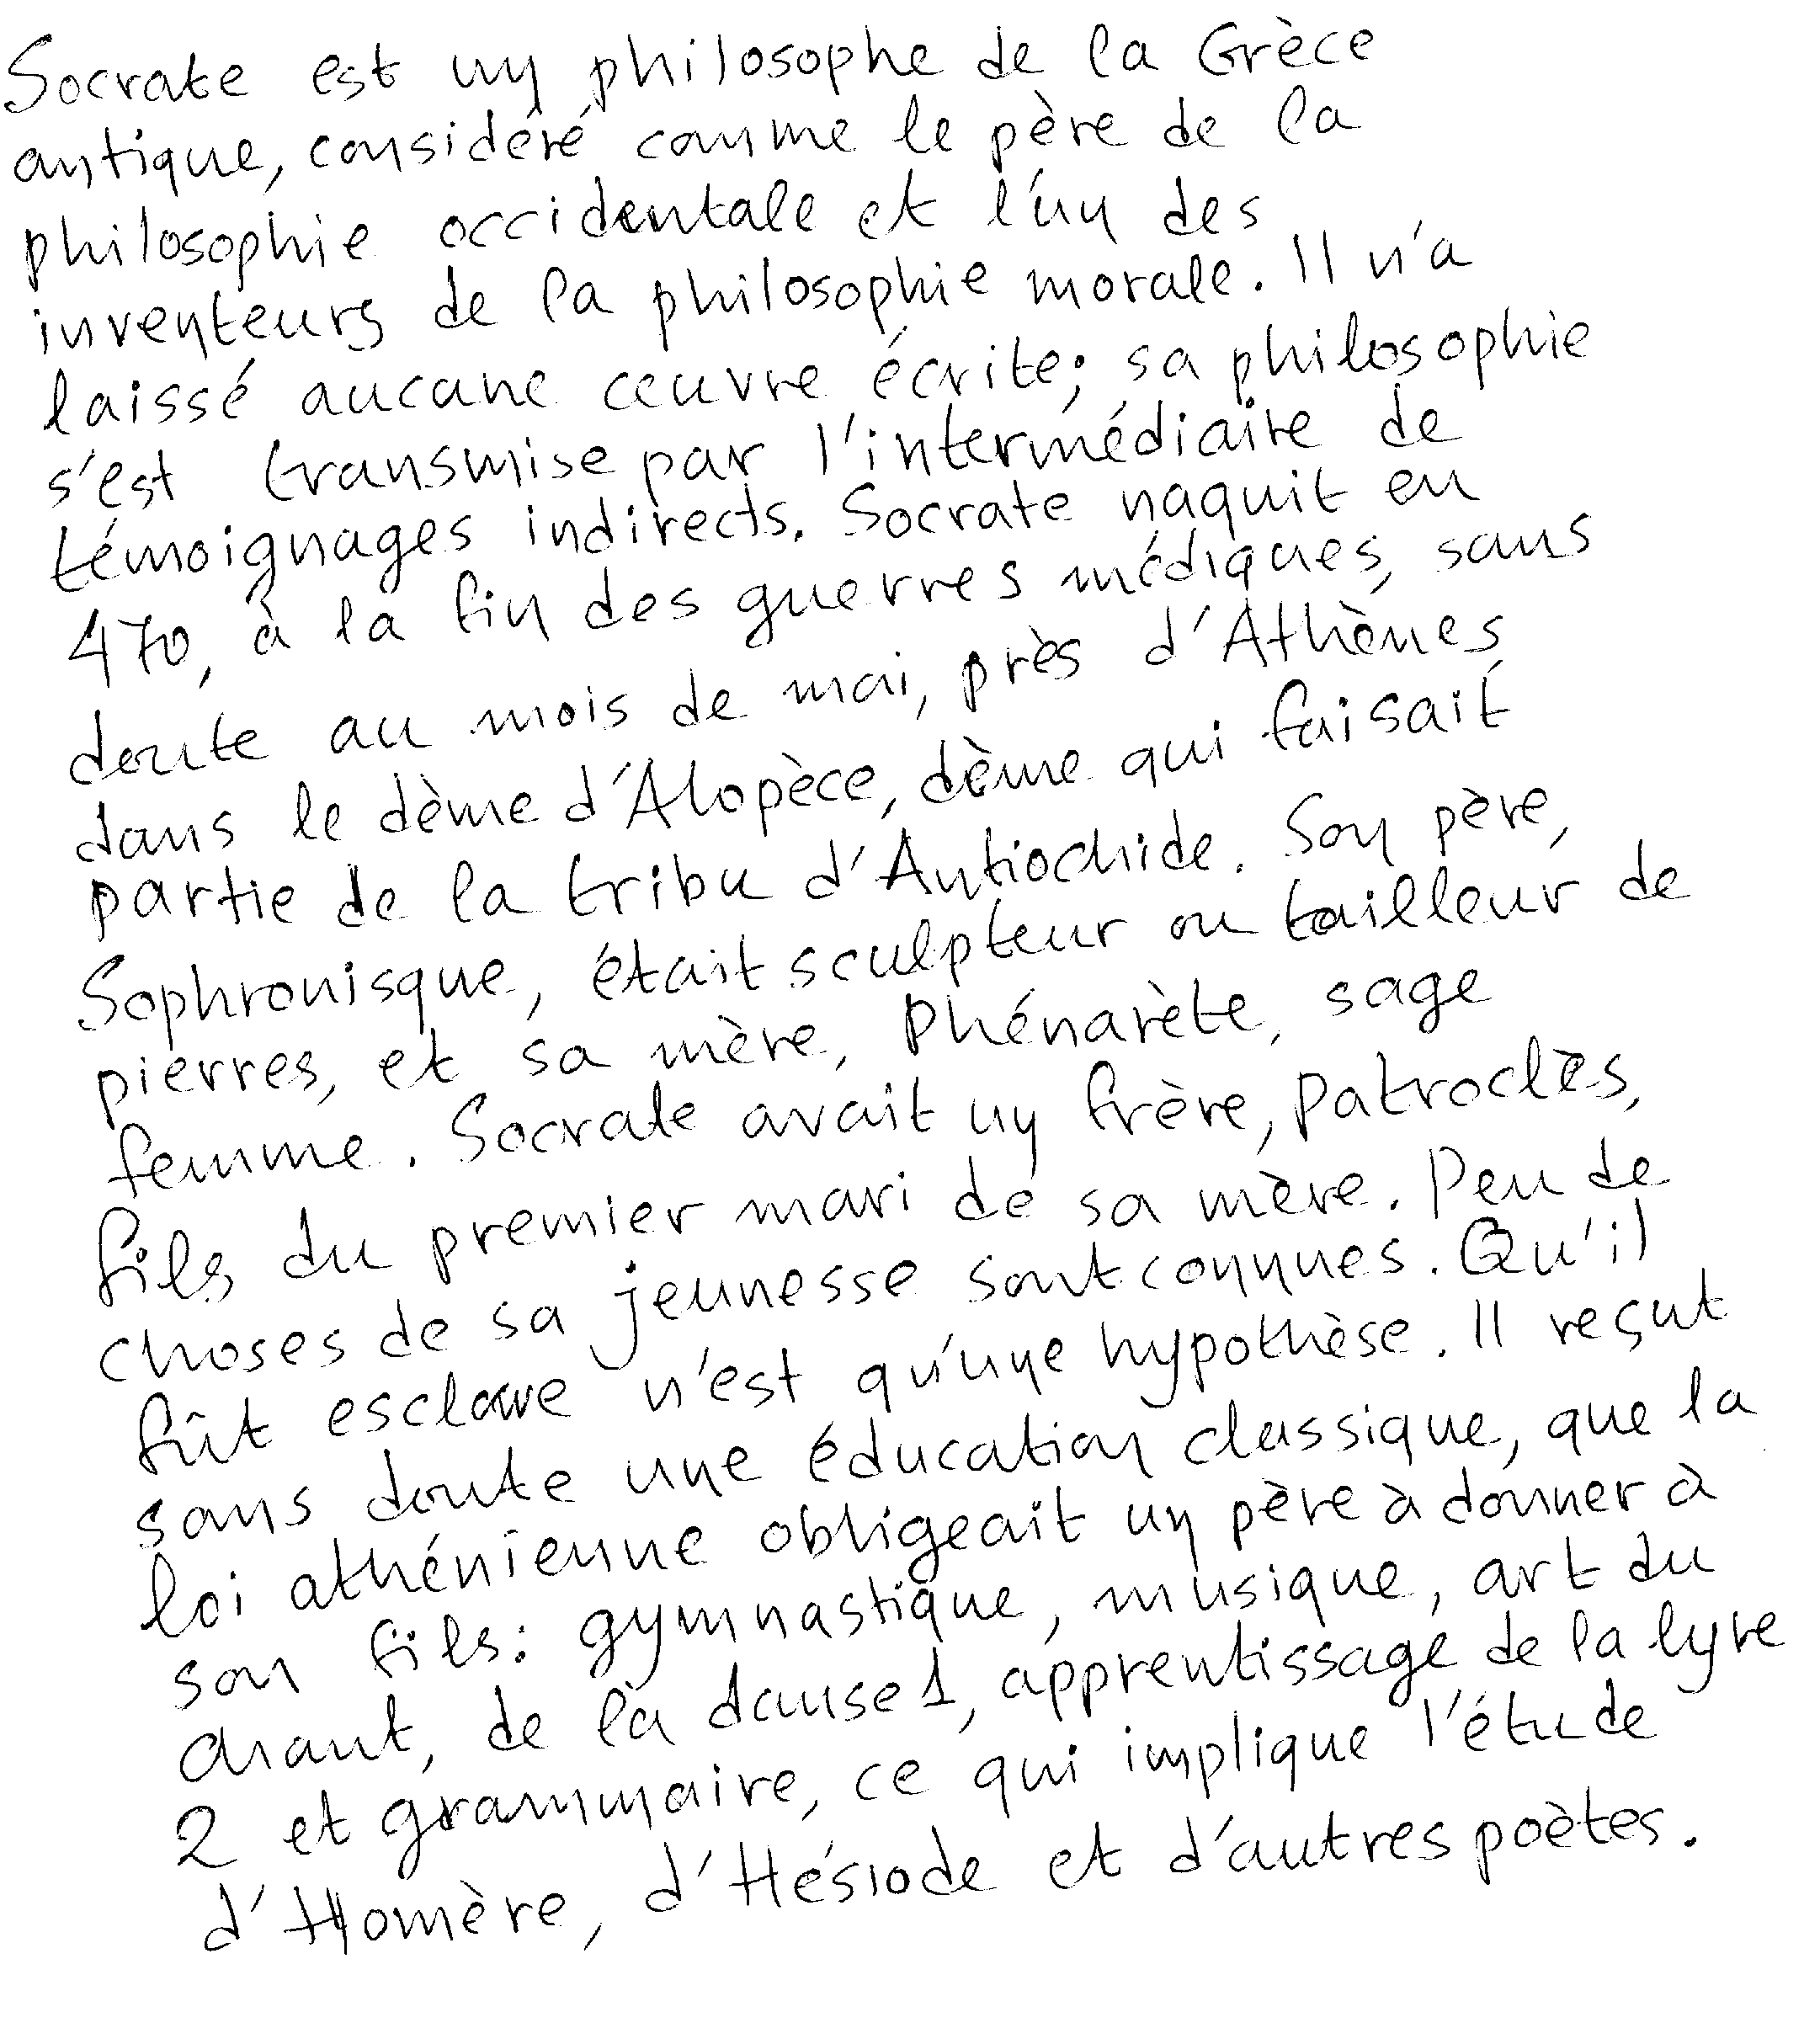 Socrate est un philosophe de la Grèce
antique, considéré comme le père de la
philosophie occidentale et l'un des
inventeurs de la philosophie morale. Il n'a
laissé aucune œuvre écrite; sa philosophie
s'est transmise par l'intermédiaire de
témoignages indirects. Socrate naquit en
470, à la fin des guerres médiques, sans
doute au mois de mai, près d'Athènes,
dans le dème d'Alopèce, dème qui faisait
partie de la tribu d'Antiochide. Son père,
Sophronisque, était sculpteur ou tailleur de
pierres, et sa mère, Phénarète, sage
femme. Socrate avait un frère, Patroclès,
fils du premier mari de sa mère. Peu de
choses de sa jeunesse sont connues. Qu'il
fût esclave n'est qu'une hypothèse. Il reçut
sans doute une éducation classique, que la
loi athénienne obligeait un père à donner à
son fils: gymnastique, musique, art du
chant, de la danse1, apprentissage de la lyre
2 et grammaire, ce qui implique l'étude
d'Homère, d'Hésiode et d'autres poètes.